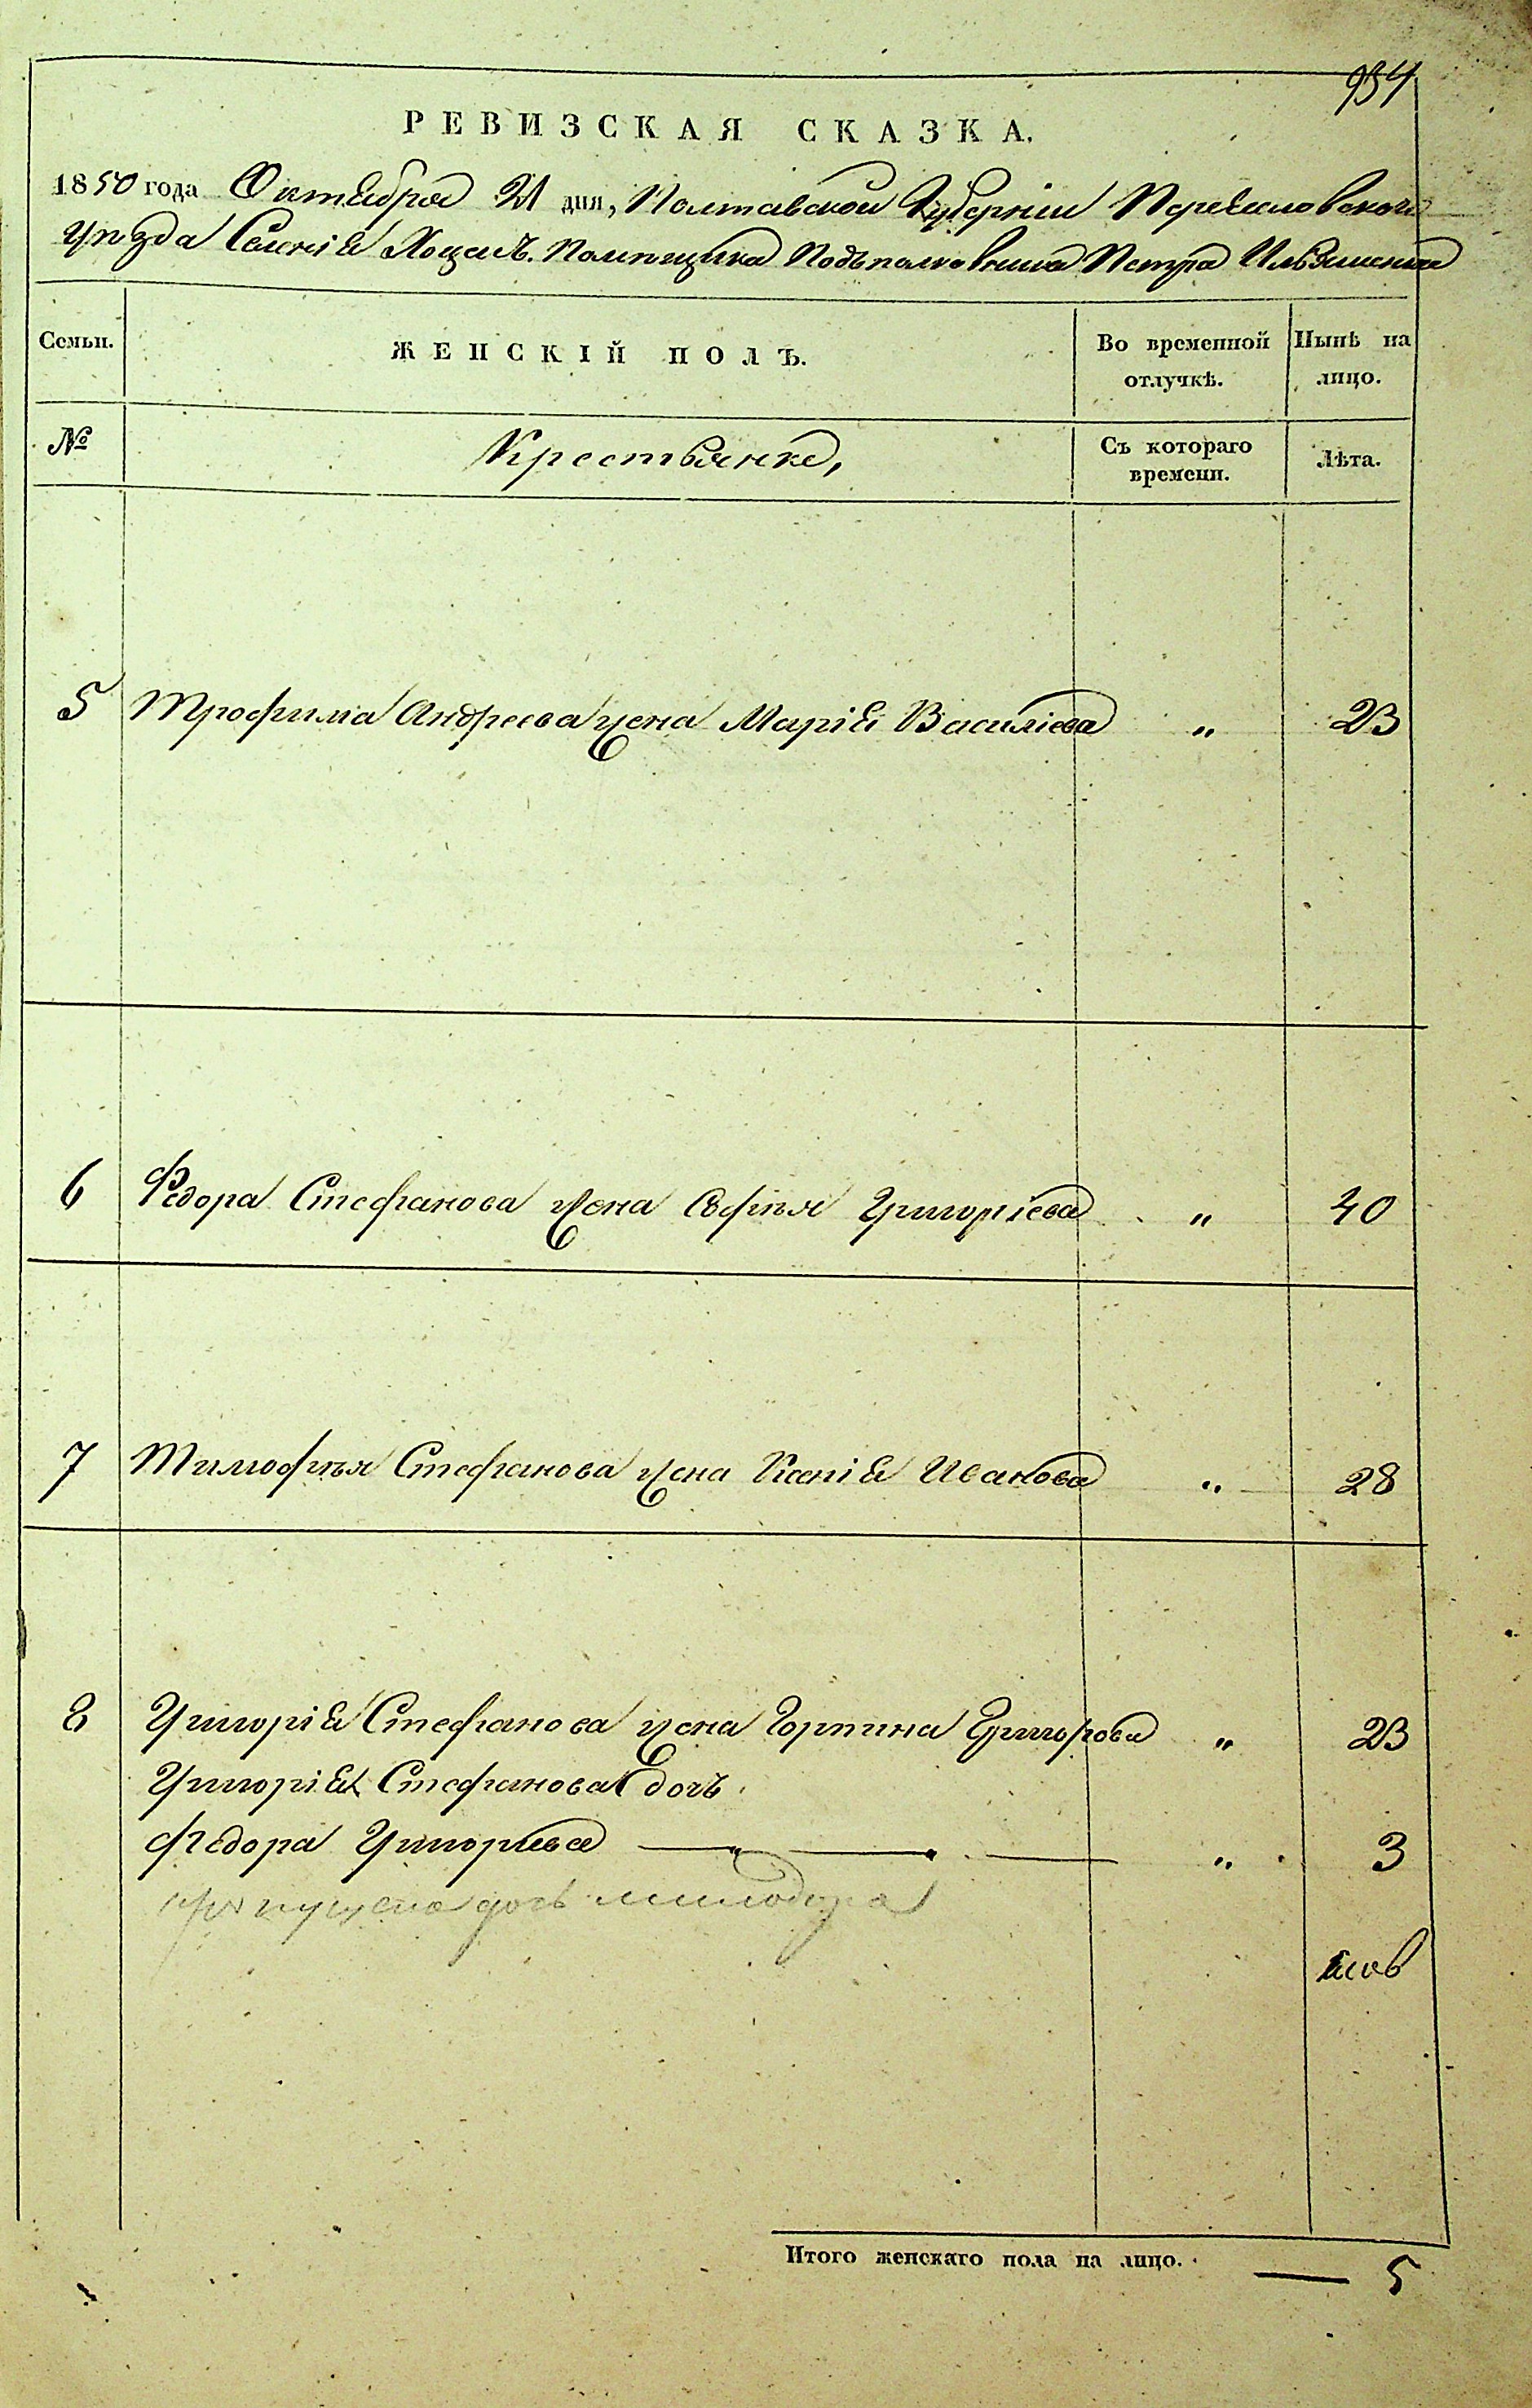 934
РЕВИЗСКАЯ СКАЗКА.
1850 года Октября 21 дня, Полтавской Губерніи Переяславского
уѣзда Селенія Хоцекъ. Помѣщика Подъполковника Петра Ильяшенка
Семьи. ЖЕНСКІЙ ПОЛЪ. Во временной отлучкѣ. Нынѣ на лицо.
№ Крестьянке, Съ котораго времени. Лѣта.
5 Трофима Андреева жена Марія Василіева „ 23
6 Федора Стефанова жена Софія Григоріева „ 40
7 Тимофѣя Стефанова жена Ксенія Иванова „ 28
8 Григорія Стефанова жена Горпина Григорова „ 23
Григорія Стефанова дочь
Федора Григориева — „ — „ — „ 3
пропущена дочь
Итого женскаго пола на лицо. — 5